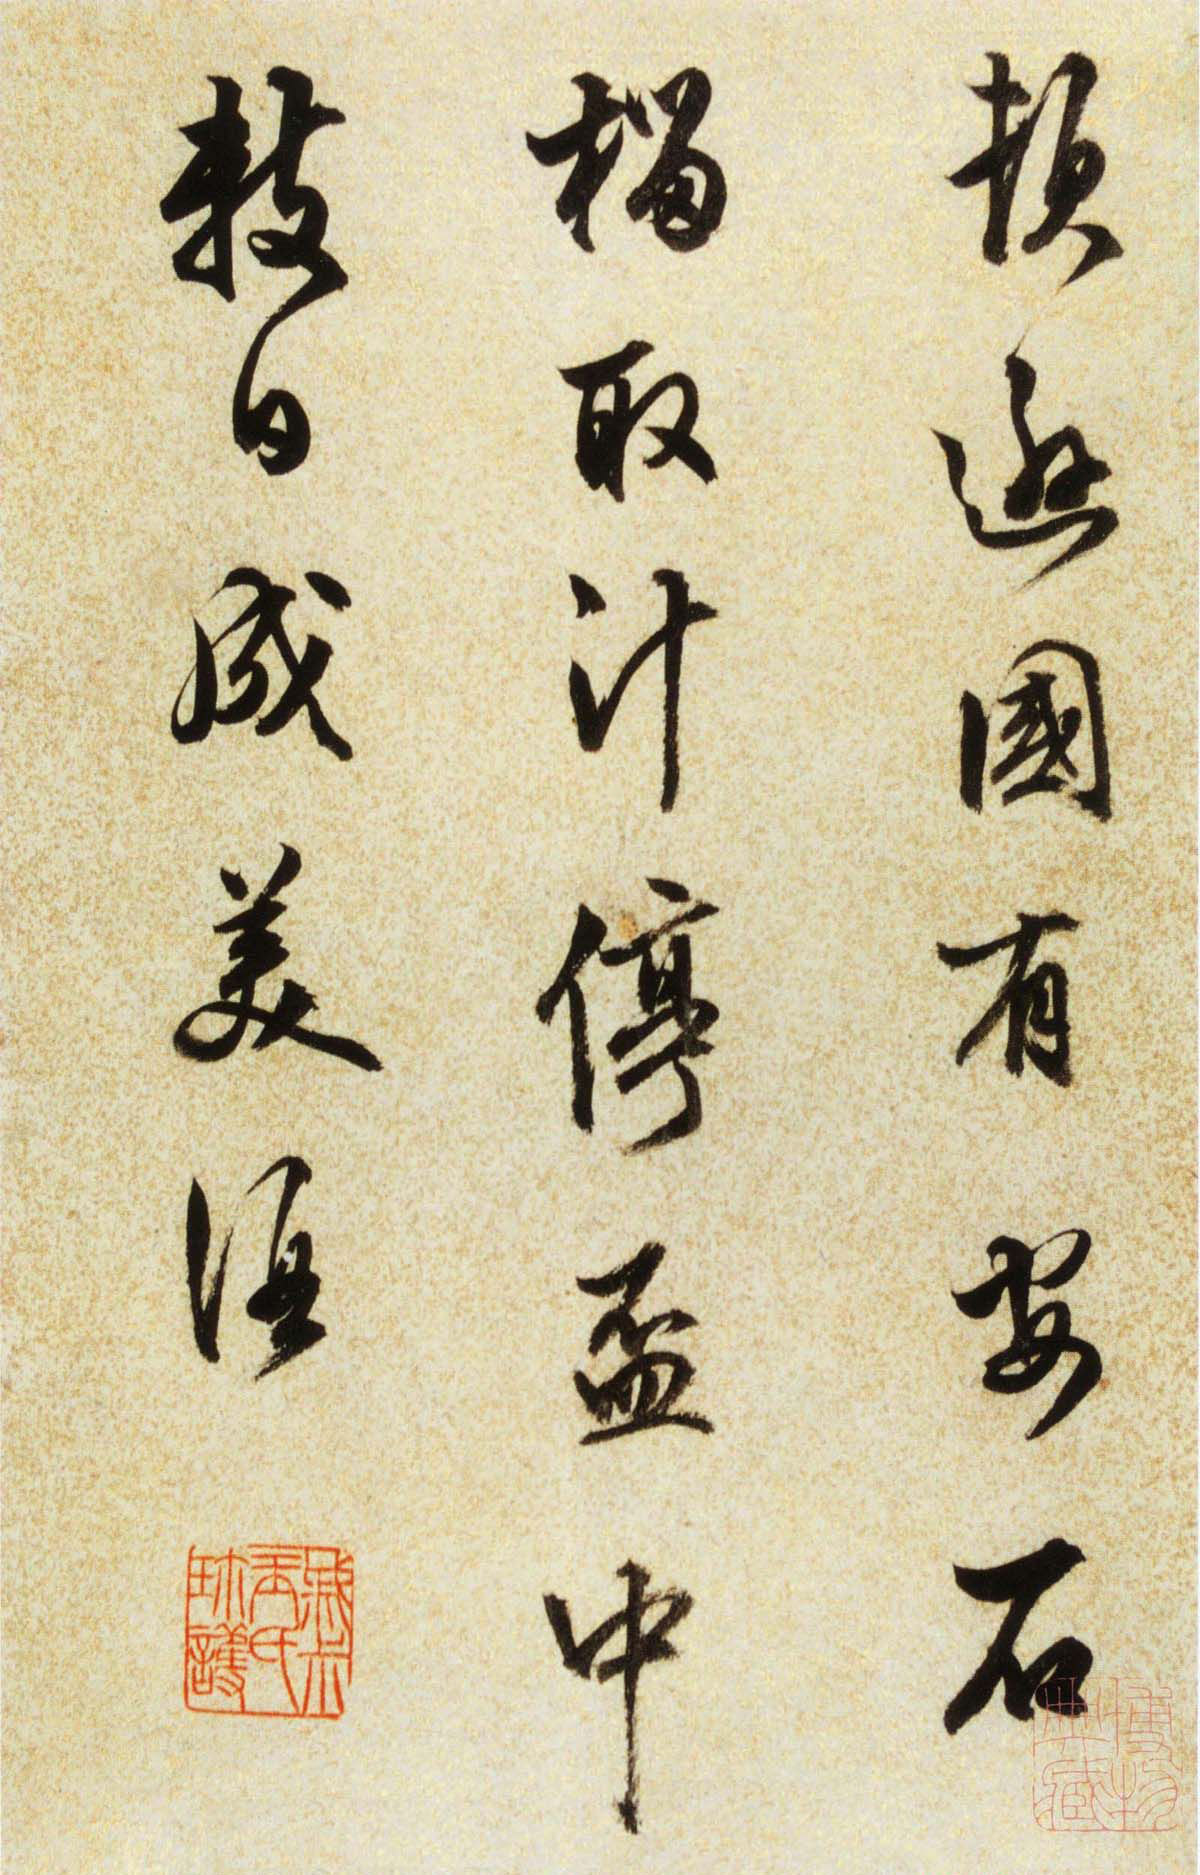 頓遜國有安石
榴取汁停盃中
數日成美酒